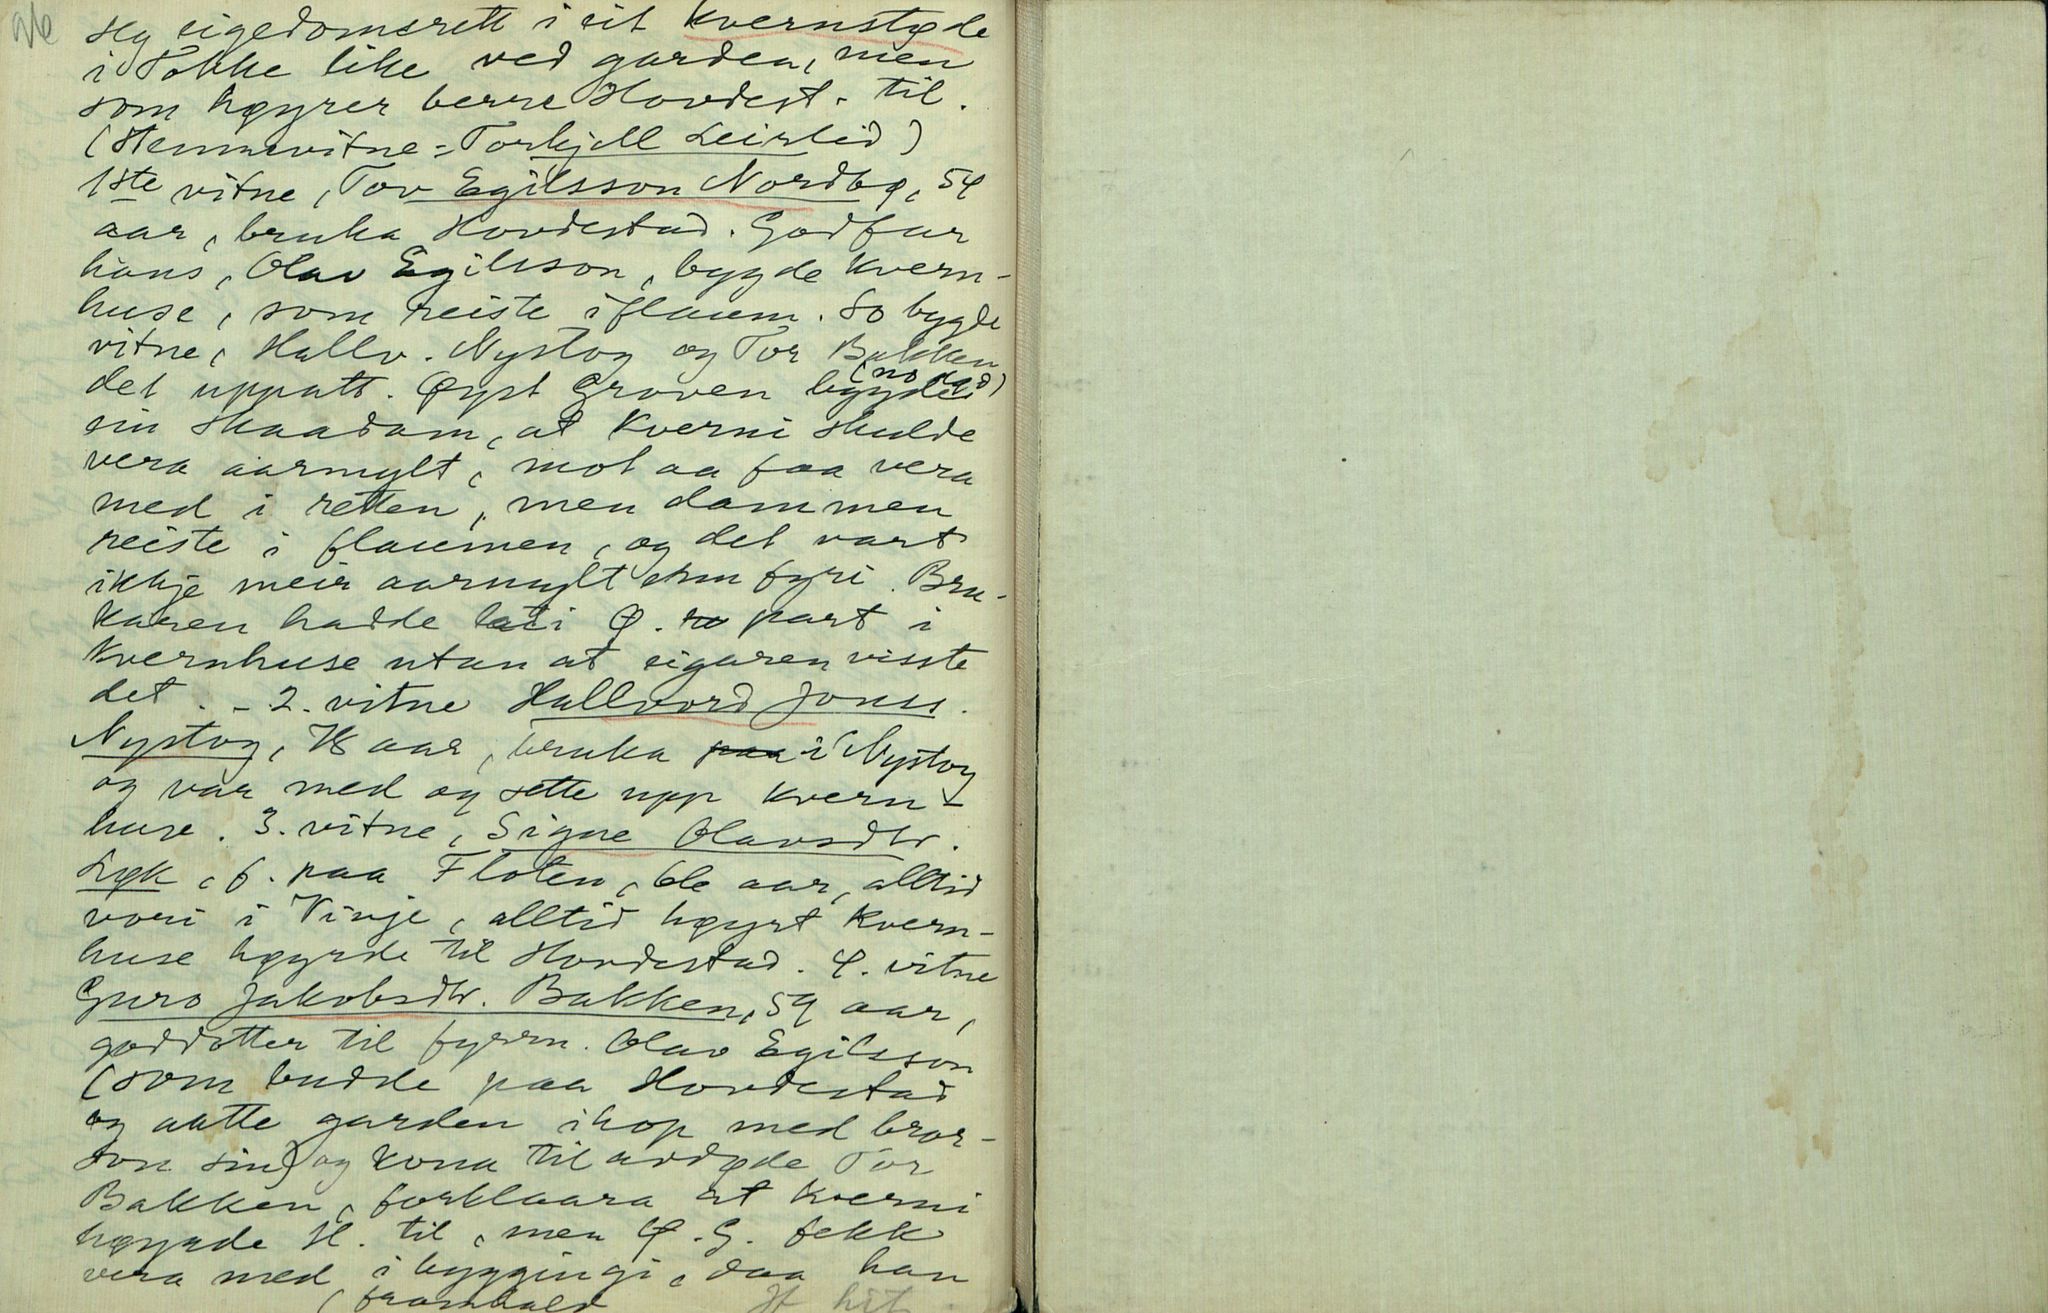 seg eigedomsrett i eit kvernstøde
i Tokke like ved garden, men
som høyrer berre Hovdest. til.
(Stemnevitne: Torkjell Leirlid)
1ste vitne, Tov Egilsson Nordbø, 54
aar, bruka Hovdestad. Godfar
hans, Olav Egilsson, bygde kvern-
huse, som reiste i flaum. So bygde
vitne, Hallv. Nystog og Tor Bakken
(no daa)
det uppatt. Øyst Groven bygde
ein skaadam, at kverni skulde
vera aarmylt, mot aa faa vera
med i retten, men dammen
reiste i flaumen, og det vart
ikkje meir aarmylt enn fyri. Bru-
karen hadde lati Ø. part i
kvernhuse utan at eigaren visste
det. - 2. vitne Hallvord Jonss.
Nystog, aar, bruka paa i Nystog
og var med og sette upp kvern-
huse. 3. vitne, Signe Olavsdtr.
Løk, f. paa Floten, aar, alltid
vori i Vinje, alltid høyrt kvern-
huse høyrde til Hovdestad. 4. vitne
Guro Jakobsdtr. Bakken, 54 aar,
goddotter til fyrrn. Olav Egilsson
(som budde paa Hovdestad
og aatte garden ihop med bror-
son sin) og kona til avdøde Tor
Bakken, forklaara at kverni
høyrde H. til, men Ø. G. fekk
vera med i byggingi, daa han
(framhald
hit